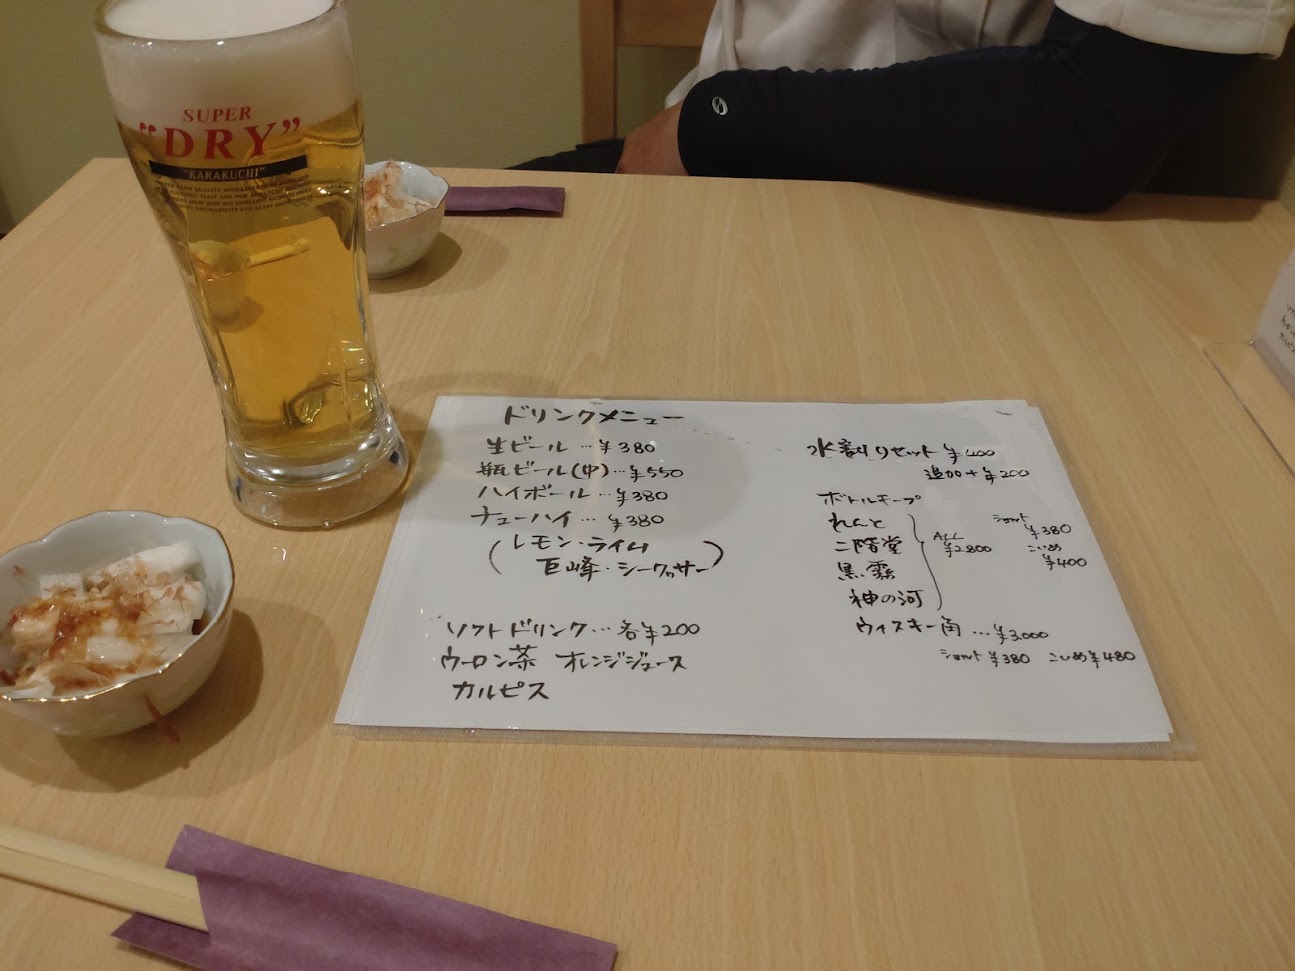 SUPER
"DRY"
"KARAKUCHI"
ドリンクメニュー
生ビール…¥380
瓶ビール(中)…¥550
ハイボール…¥380
チューハイ…¥380
(レモン・ライム
巨峰・シークヮサー)
ソフトドリンク…各¥200
ウーロン茶 オレンジジュース
カルピス
水割りセット ¥400
追加+¥200
ボトルキープ
れんと
二階堂
黒霧
神の河
ALL
¥2800
ショット
¥380
こいめ
¥400
ウィスキー角…¥3,000
ショット¥380 こいめ¥480